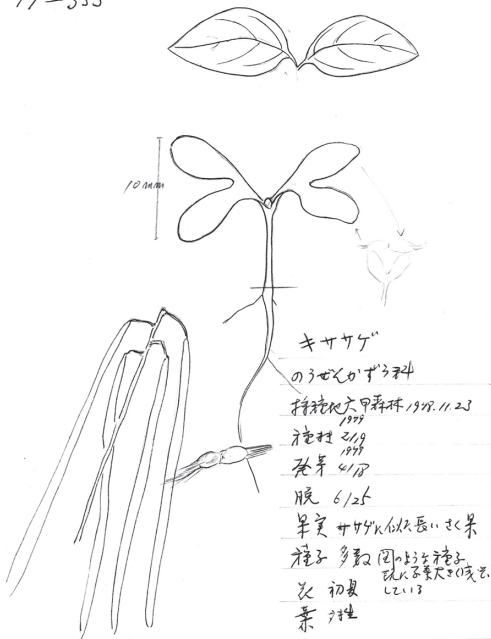 10mm
キササゲ
のうぜんかずら科
採種地 六甲森林 1978.11.23
1979
種封 2/19
1979
発芽 4/18
脱 6/25
果実 ササゲに似た長いさく果
種子 多数 図のような種子
現に子葉大きく成
している
花 初夏
葉 対生